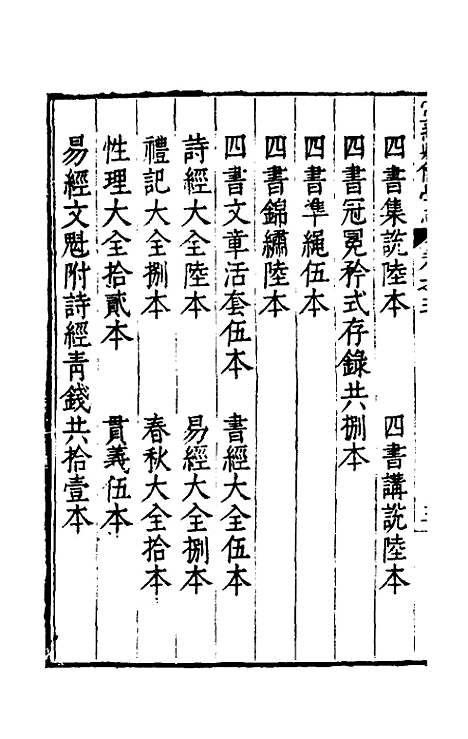 四書集說陸本　四書講說陸本
四書冠冕矜式存錄共捌本
四書準繩伍本
四書錦繡陸本
四書文章活套伍本　書經大全伍本
詩經大全陸本　易經大全捌本
禮記大全捌本　春秋大全拾本
性理大全拾貳本　貫義伍本
易經文魁附詩經青錢共拾壹本